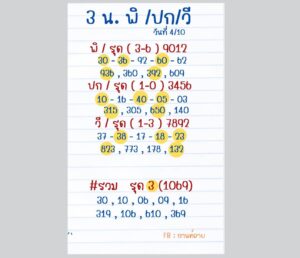 3 น. พิ /ปก/วี
วันที่ 4/10
พิ / รุด ( 3-6 ) 9012
30 - 36 - 92 - 60 - 62
936 , 360 , 392 , 609
ปก / รุด ( 1-0 ) 3456
10 - 16 - 40 - 05 - 03
315 , 305 , 650 , 140
วี / รุด ( 1-3 ) 7892
37 - 38 - 17 - 18 - 23
823 , 773 , 178 , 132
#รวม รุด 3 (1069)
30 , 10 , 06 , 09 , 16
319 , 106 , 610 , 369